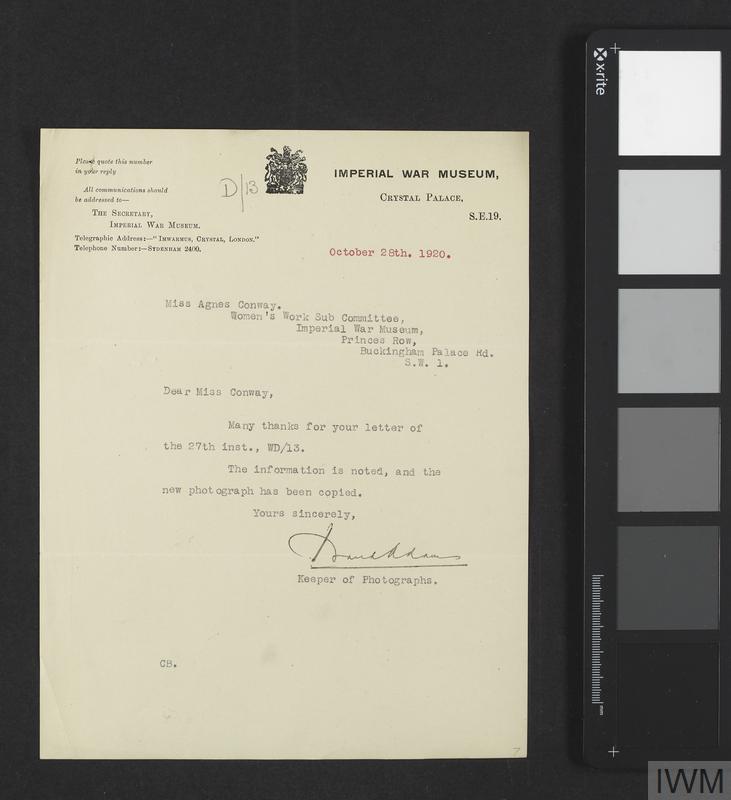 Please quote this number
in your reply
All communications should
be addressed to—
The Secretary,
Imperial War Museum.
Telegraphic Address:—"Imwarmus, Crystal, London."
Telephone Number:—Sydenham 2400.
D/13
IMPERIAL WAR MUSEUM,
Crystal Palace,
S.E.19.
October 28th. 1920.
Miss Agnes Conway.
Women's Work Sub Committee,
Imperial War Museum,
Princes Row,
Buckingham Palace Rd.
S.W. 1.
Dear Miss Conway,
Many thanks for your letter of
the 27th inst., WD/13.
The information is noted, and the
new photograph has been copied.
Yours sincerely,
Keeper of Photographs.
CB.
7
x-rite
mm
IWM